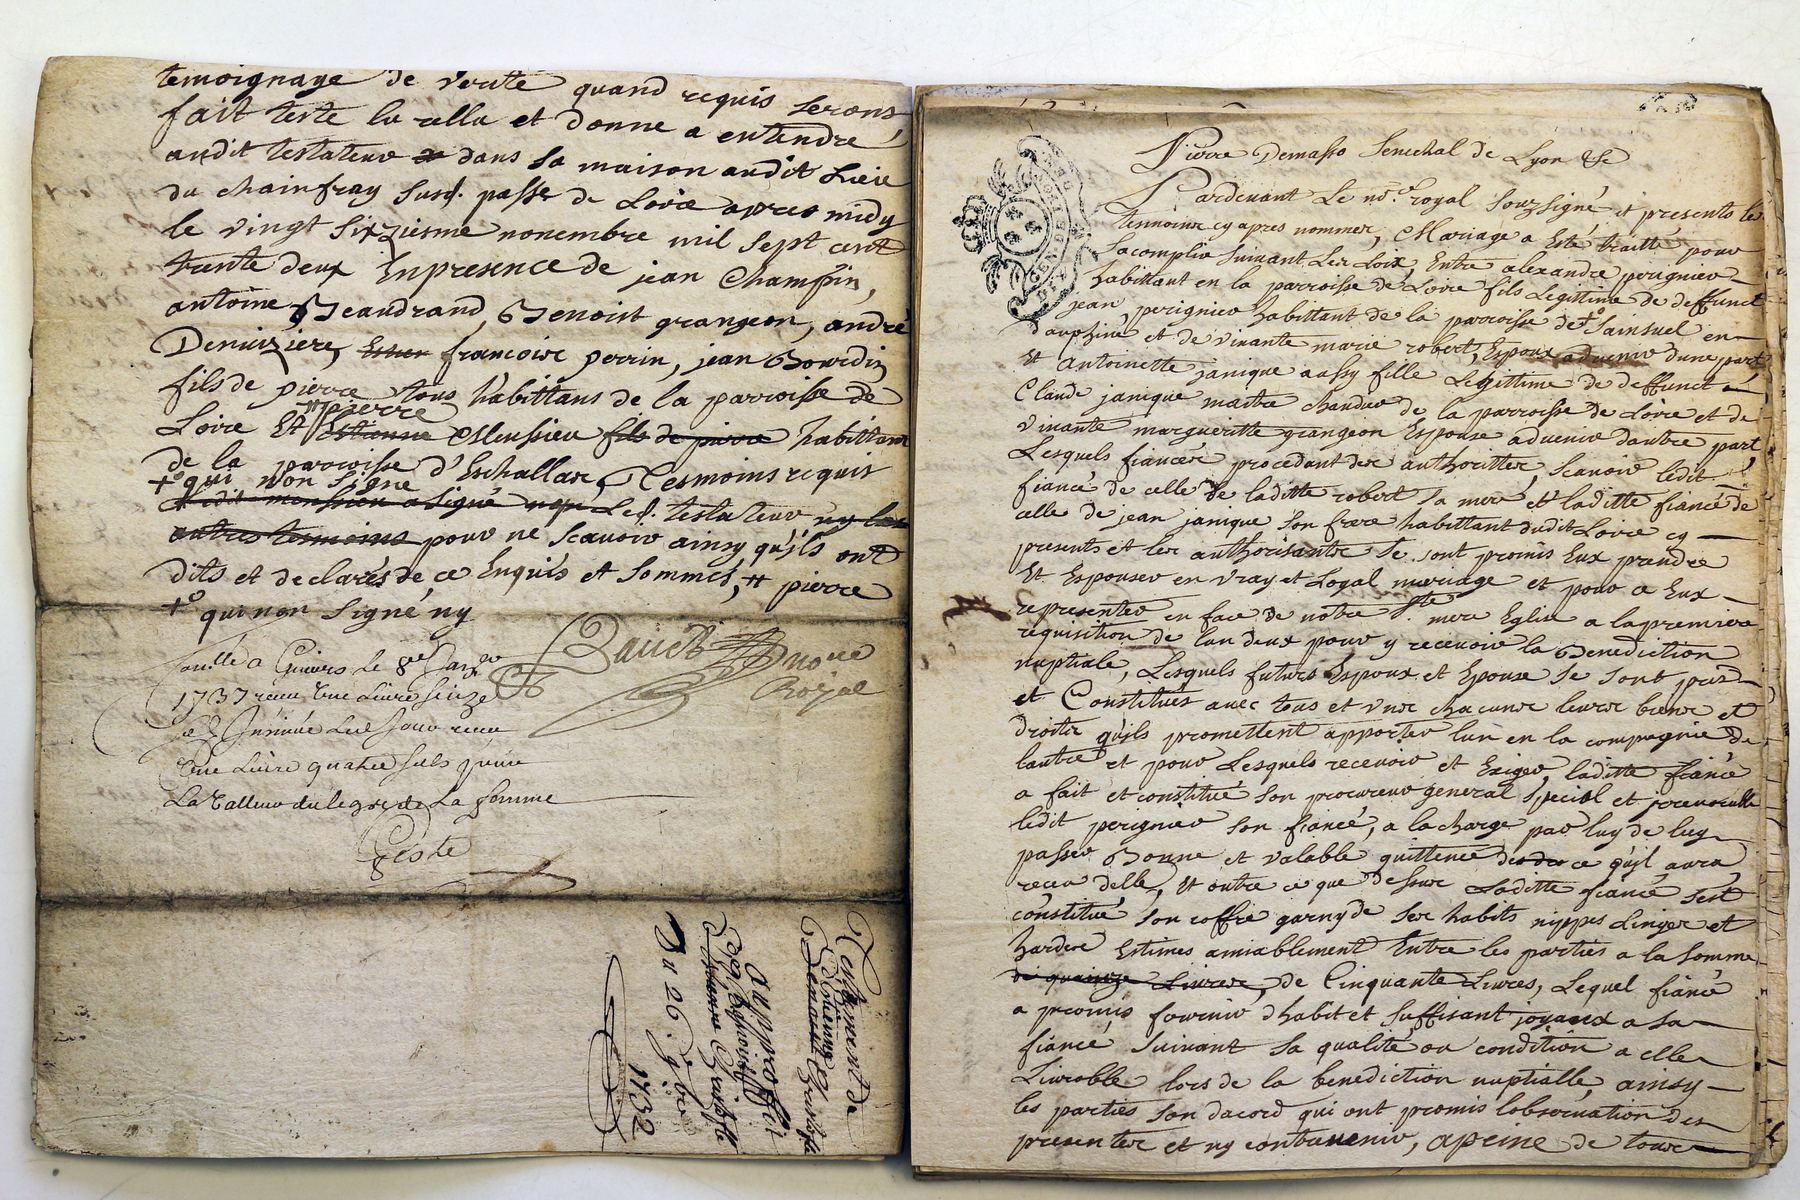 temoignage de verité quand requis serons
fait leste lu cella et donne a entendre
audit testateur dans sa maison audit Lieu
du chainfray susd. passe de Loire apres midy
le vingt sixziesme novembre mil sept cent
trente deux En presence de jean Champin,
antoine Beaudrand, Benoist grangeon, andré
Deniziere, francoise perrin, jean Bourdin
fils de pierre tous habittans de la parroisse de
Loire Et pierre Estienne Meussieu fils de pierre habittant
de la parroisse d'Eschallas, Tesmoins requis
+° qui non signé
Ledit meussieu a signé non Led. testateur ny les
autres tesmoins pour ne scavoir ainsy quils ont
dits et declarés de ce Enquis et sommés, # pierre
+° qui non signé ny
no.re
Royal
Conllé a Givors le 8e Janv
1737 receu Une Livre seize
sols Insinué led Jour receu
Une Livre quatre sols
La valleur du legs de La femme
Geste
Testament de
Estienne
au proffit
Du 26. 9bre
1732
Pierre Demasso Senechal de Lyon &c
Pardevant Le no.re royal souzsigné et presents les
temoins cy apres nommer, Mariage a Esté traitté pour
sacomplir suivant Les Loix, Entre alexandre perignieu
habittant en la parroisse de Loire fils Legittime de deffunct
jean perignieu habittant de la parroisse de st Sainsuel en
dauphine et de vivante marie robert, Espoux advenir dune part
Et Antoinette janique aussy fille Legittime de deffunct
Claude janique maitre chandeu de la parroisse de Loire et de
vivante margueritte grangeon Espouse advenir dautre part
Lesquels fiancer procedant des authoritter, scavoir ledit
fiancé de celle de laditte robert sa mere et laditte fiancé de
celle de jean janique son frere habittant dudit Loire cy
presents et les authorisants se sont promis Eux prendre
Et Espouser en vray et Loyal mariage et pour ce Eux
representer en face de notre Ste mere Eglise a la premiere
requisition de lun deux pour y recevoir la Benediction
nuptiale, Lesquels futurs Espoux et Epouse se sont pris
et Constitués avec tous et uns chacuns leurs biens et
droits quils promettent apporter lun en la compagnie de
lautre et pour Lesquels recevoir et Exiger laditte fiancé
a fait et constitué son procureur general special et jrrevocable
ledit perignieu son fiancé, a la charge par luy de luy
passer Bonne et valable quittence de ce quil aura
receu delle, Et outre ce que dessus Laditte fiancé sest
constitué son coffre garny de ses habits nippes Linges et
hardes Estimes amiablement Entre les parties a la somme
de quinze Livres, de Cinquante Livres, Lequel fiancé
a promis fournir dhabit et suffisant joyaux a sa
fiancé, suivant sa qualité ou condition a elle
Livrable lors de la benediction nuptialle, ainsy
les parties son dacord qui ont promis lobservation des
presenter et ny contrevenir, a peine de tous